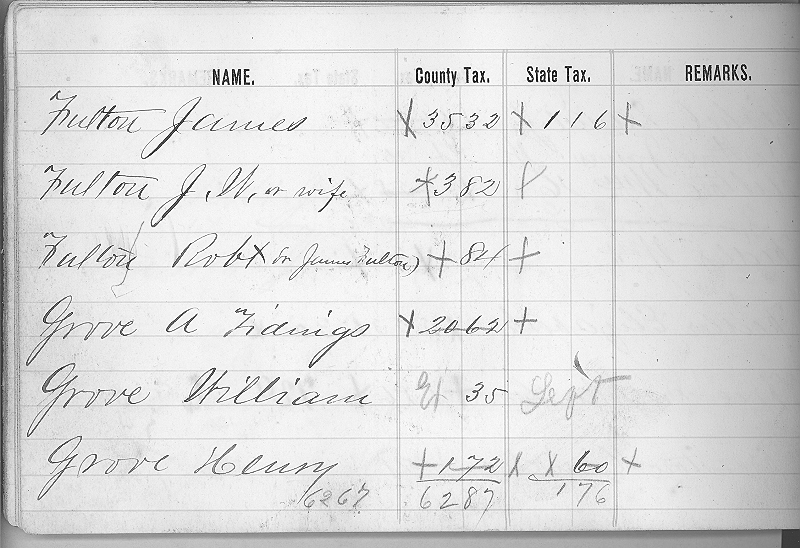 NAME. County Tax. State Tax. REMARKS.
Fulton James X 3532 X 116 X
Fulton J. W. or wife X 382 X
Fulton Robt (or James Fulton) X 84 X
Grove A Tidings X 2062 X
Grove William Ex 35 Left
Grove Henry X 172 X X 60 X
6267 6287 176